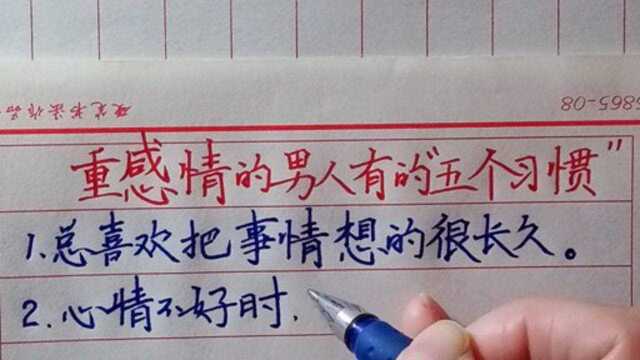 硬笔书法作品
6865-08
重感情的男人有的"五个习惯"
1.总喜欢把事情想的很长久。
2.心情不好时,